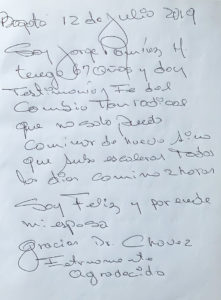 Bogotá 12 de Julio 2019
Soy Jorge Ramírez H
tengo 67 años y doy
Testimonio y Fe del
Cambio tan radical
que no solo puedo
caminar de nuevo sino
que subo escaleras todos
los días camino 2 horas
Soy Feliz y por ende
mi esposa
gracias Dr. Chavez
Eternamente
agradecido